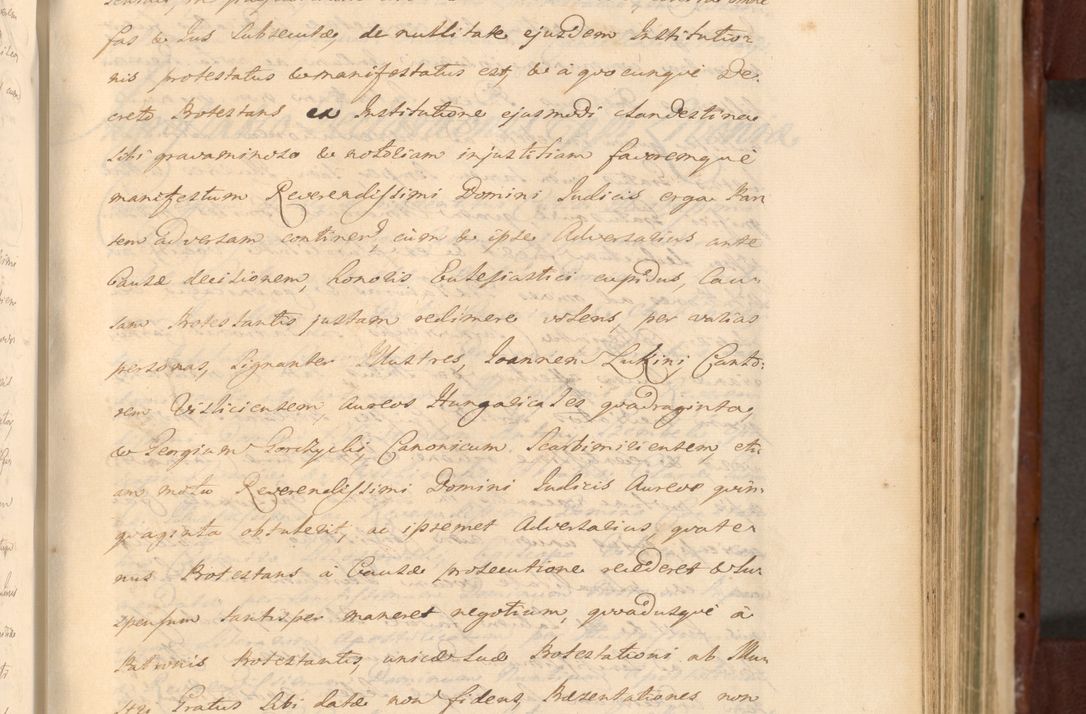 fas & Jus Subsecutæ, de nullitate ejusdem Institutio-
nis protestatus & manifestatus est, & à quocunquè De-
creto Protestans ex Institutione ejusmodi clandestina
sibi gravaminoso & notoriam injustitiam favoremquè
manifestum Reverendissimi Domini Judicis erga Par-
tem adversam continen, cùm & ipse Adversarius ante
Causæ decisionem, honoris Ecclesiastici cupidus, Cau-
sam Protestantis justam redimere volens, per varias
personas, signanter Illustres, Joannem Lukini Canto-
rem Visliciensem, aureos Hungaricales quadraginta,
& Gorzycki Canonicum Scarbimiriensem eti-
am motu Reverendissimi Domini Judicis Aureos quin-
quaginta obtulerit, ac ipsemet Adversarius, quate-
nus Protestans à Causæ prosecutione recederet & Sus-
pensum tantisper maneret negotium, quoadusquè à
Patronis Protestantis, unicæ suæ Protestationi ab Illu-
Gratus sibi datæ non fidens, Præsentationes non